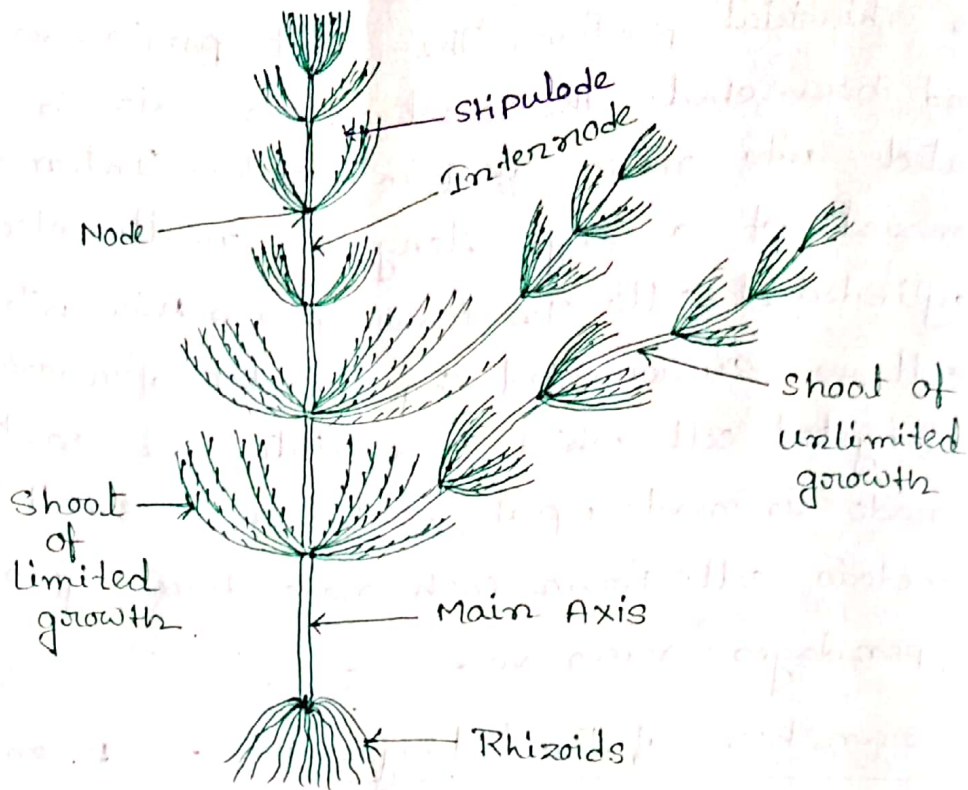 Stipulode
Internode
Node
Shoot of
unlimited
growth
Shoot
of
limited
growth.
Main Axis
Rhizoids